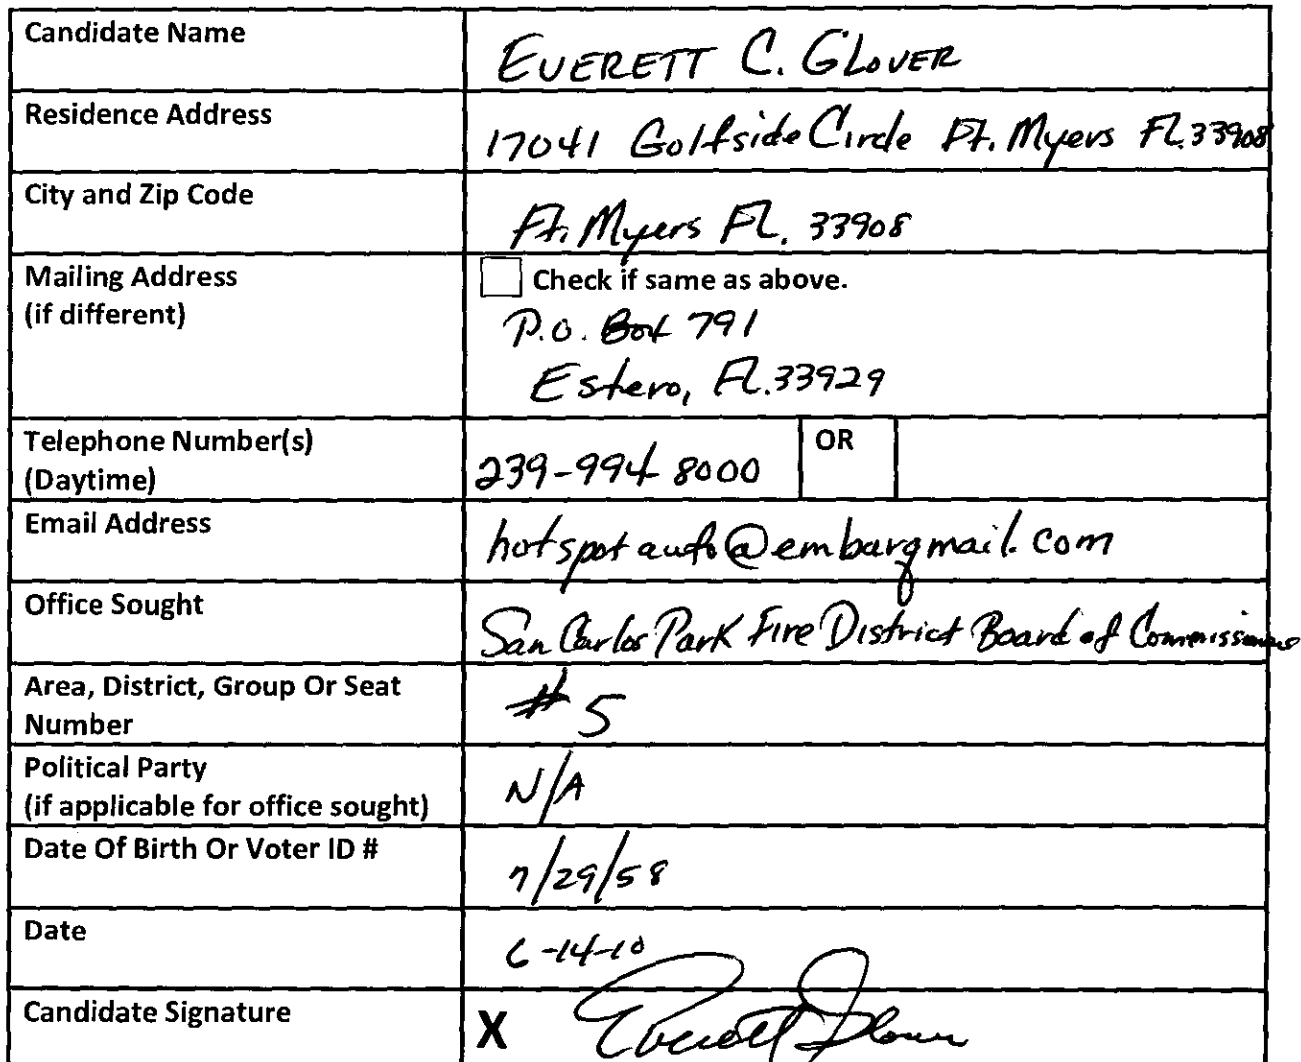 Candidate Name EVERETT C. GLOVER
Residence Address 17041 Golfside Circle Ft. Myers FL. 33908
City and Zip Code Ft. Myers FL. 33908
Mailing Address Check if same as above.
(if different) P.O. Box 791
Estero, FL. 33929
Telephone Number(s) OR
(Daytime) 239-994 8000
Email Address hotspotauto@embarqmail.com
Office Sought San Carlos Park Fire District Board of Commissioners
Area, District, Group Or Seat # 5
Number
Political Party N/A
(if applicable for office sought)
Date Of Birth Or Voter ID # 7/29/58
Date 6-14-10
Candidate Signature X Everett Glover